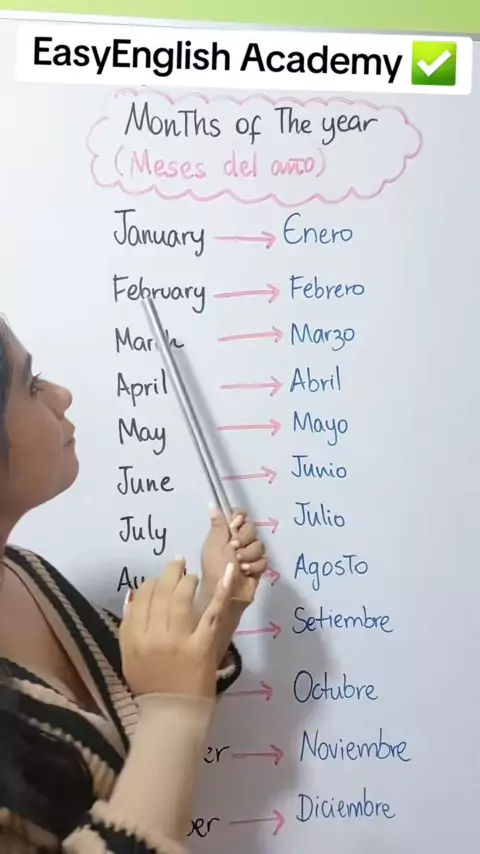 EasyEnglish Academy ✅
MonThs of The year
(Meses del año)
January → Enero
February → Febrero
March → Marzo
April → Abril
May → Mayo
June → Junio
July → Julio
→ AgosTo
→ Setiembre
→ Octubre
→ Noviembre
→ Diciembre